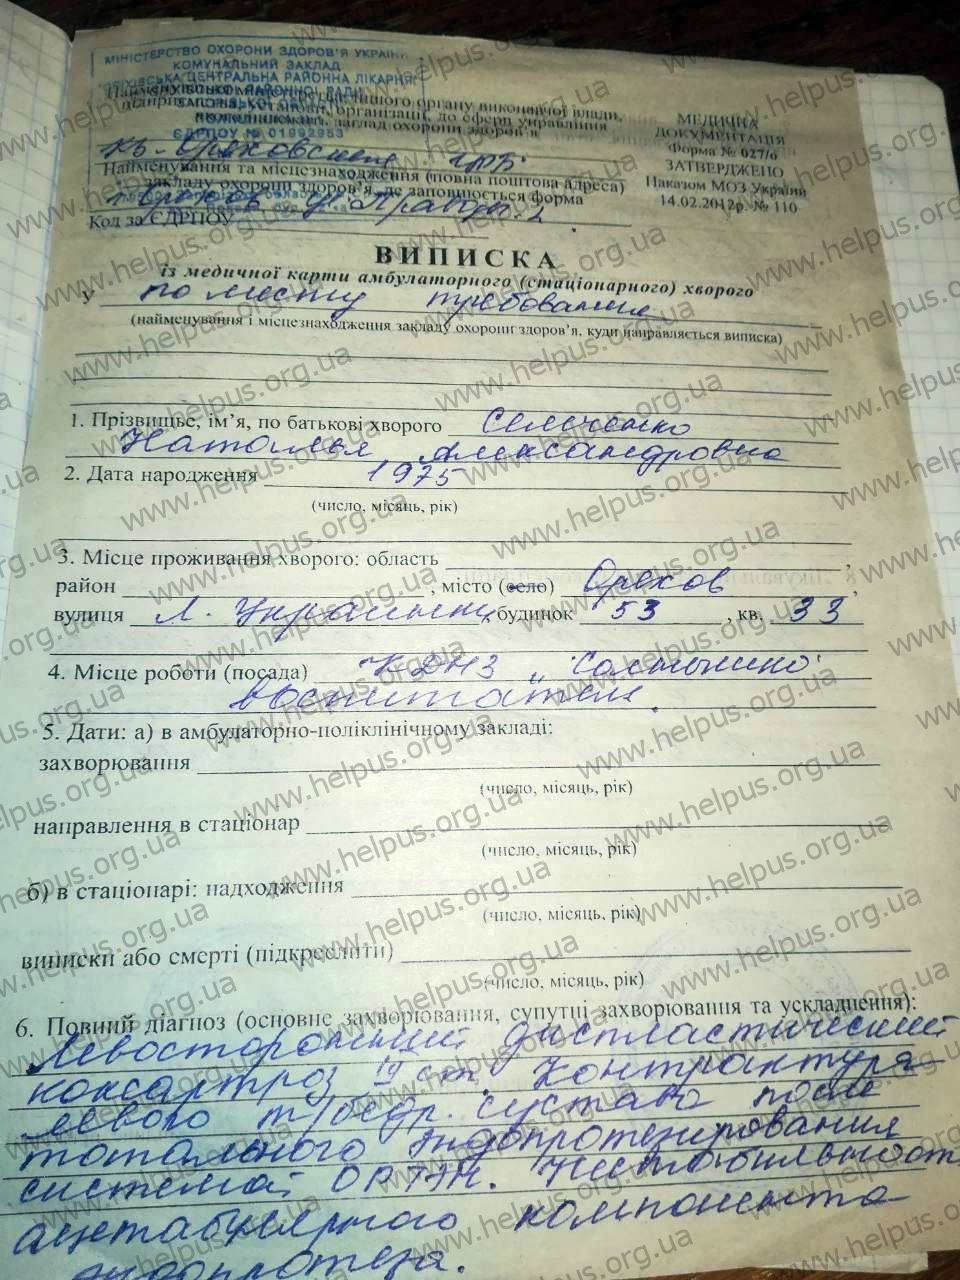 МІНІСТЕРСТВО ОХОРОНИ ЗДОРОВ'Я УКРАЇНИ
КОМУНАЛЬНИЙ ЗАКЛАД
ЦЕНТРАЛЬНА РАЙОННА ЛІКАРНЯ
РАЙОННОЇ РАДИ
ЄДРПОУ № 01992953
Найменування міністерства, іншого органу виконавчої влади,
підприємства, установи, організації, до сфери управління
заклад охорони здоров'я
КЗ - Ореховская ЦРБ
Найменування та місцезнаходження (повна поштова адреса)
закладу охорони здоров'я, де заповнюється форма
г. Орехов ул. Правды
Код за ЄДРПОУ
МЕДИЧНА
ДОКУМЕНТАЦІЯ
Форма № 027/о
ЗАТВЕРДЖЕНО
Наказом МОЗ України
14.02.2012р. № 110
ВИПИСКА
із медичної карти амбулаторного (стаціонарного) хворого
У по месту требования
(найменування і місцезнаходження закладу охорони здоров'я, куди направляється виписка)
1. Прізвищье, ім'я, по батькові хворого
Наталья Александровна
2. Дата народження 1975
(число, місяць, рік)
3. Місце проживання хворого: область ,
район , місто (село) Орехов ,
вулиця Л. Украинки, будинок 53 , кв. 33
4. Місце роботи (посада) КДНЗ "Солнышко"
воспитатель.
5. Дати: а) в амбулаторно-поліклінічному закладі:
захворювання
(число, місяць, рік)
направлення в стаціонар
(число, місяць, рік)
б) в стаціонарі: надходження
(число, місяць, рік)
виписки або смерті (підкреслити)
(число, місяць, рік)
6. Повний діагноз (основне захворювання, супутні захворювання та ускладнення):
Левосторонний диспластический
коксартроз IV ст. Контрактура
левого т/бедр. сустава после
тотального эндопротезирования
системой ОРТЭН. Нестабильность
ацетабулярного компонента
эндопротеза.
www.helpus.org.ua